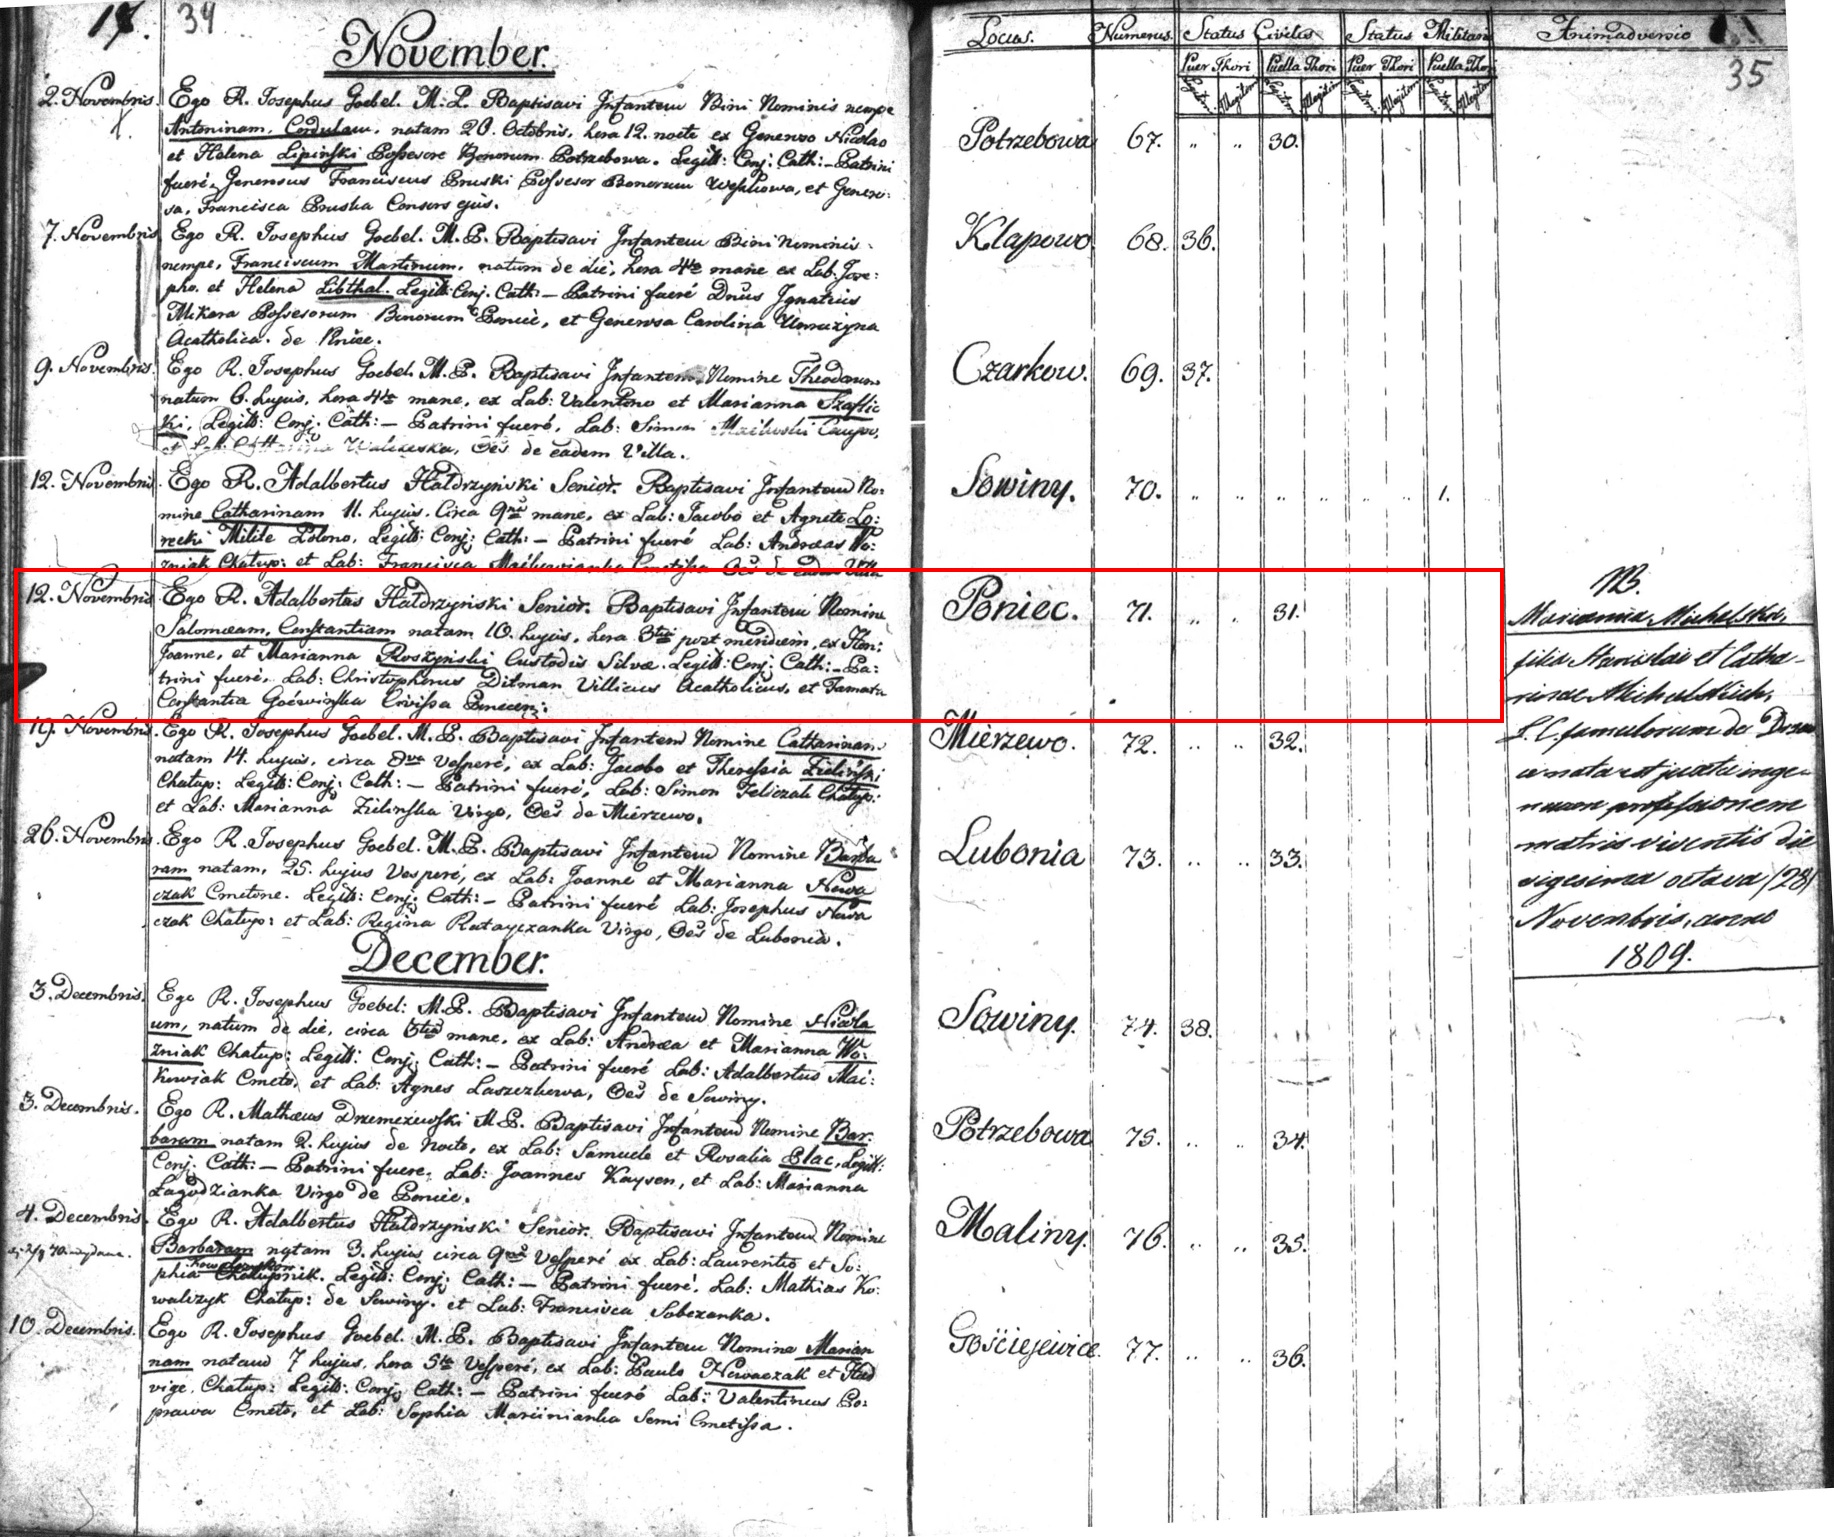 17. 34
November.
2. Novembris. Ego R. Josephus Goebel. M. P. Baptisavi Infantem Bini Nominis nempe
Antoninam, Cordulam, natam 28. Octobris, hora 12. nocte ex Generoso Nicolao
et Helena Lipiński Possessore Bonorum Potrzebowa. Legitt: Conj: Cath: – Patrini
fueré, Generosus Franciscus Pruski Possessor Bonorum et Genero-
sa, Francisca Pruska Consors ejus.
7. Novembris Ego R. Josephus Goebel. M. P. Baptisavi Infantem Bini Nominis
nempe, Franciscum Martinum, natum de die, hora 4ta mane ex Lab: Jose:
pho. et Helena Libthal. Legitt: Conj. Cath: – Patrini fueré Dnus Ignatius
Mikora Possesorum Bonorum Poniec, et Generosa Carolina
Acatholica. de
9. Novembris. Ego R. Josephus Goebel. M. P. Baptisavi Infantem Nomine Theodorum
natum 6. hujus, hora 4ta mane, ex Lab: Valentino et Marianna Szaflic
ki, Legitt: Conj: Cath: – Patrini fueré, Lab: Simon
Oēs de eadem Villa.
12. Novembris. Ego R. Adalbertus Hałdrzyński Senior. Baptisavi Infantem No:
mine Catharinam 11. hujus. Circa 9na mane, ex Lab: Jacobo et Agnete Lo:
recki Milite Polono, Legitt: Conj: Cath: – Patrini fueré Lab: Andreas Wo:
zniak Chałup: et Lab: Francisca Oēs de eadem Villa
12. Novembris Ego R. Adalbertus Hałdrzyński Senior. Baptisavi Infantem Nomine
Salomeam, Constantiam natam 10. hujus, hora 3tia post meridiem, ex Hon:
Joanne, et Marianna Roszyński Custodis Silvae. Legitt: Conj: Cath: – Pa:
trini fueré, Lab: Christophorus Ditman Villicus Acatholicus, et Famata
Constantia Goźwińska Civissa Ponecen:.
19. Novembris. Ego R. Josephus Goebel. M. P. Baptisavi Infantem Nomine Catharinam
natam 14. hujus, circa 8va Vesperé, ex Lab: Jacobo et Theressia Zieliński
Chałup: Legitt: Conj: Cath: – Patrini fueré, Lab: Simon Feliczak Chałup:
et Lab: Marianna Zielińska Virgo, Oēs de Mierzewo.
26. Novembris. Ego R. Josephus Goebel. M. P. Baptisavi Infantem Nomine Barba
ram natam, 25. hujus Vesperé, ex Lab: Joanne et Marianna Nowa
czak Cmetone. Legitt: Conj: Cath: – Patrini fueré Lab: Josephus Nowa
czak Chałup: et Lab: Regina Ratayczanka Virgo, Oēs de Lubonia.
December.
3. Decembris. Ego R. Josephus Goebel: M. P. Baptisavi Infantem Nomine Nicola
um, natum de die, circa 5ta mane, ex Lab: Andrea et Marianna Wo:
zniak Chałup: Legitt: Conj: Cath: – Patrini fueré Lab: Adalbertus Mai:
kowiak Cmeto, et Lab: Agnes Laszczkowa, Oēs de Sowiny.
3. Decembris. Ego R. Mathaeus Drzemczewski M. P. Baptisavi Infantem Nomine Bar:
baram natam 2. hujus de Nocte, ex Lab: Samuele et Rosalia Plac, Legitt:
Conj: Cath: – Patrini fuere, Lab: Joannes Kayson, et Lab: Marianna
Łagodzianka Virgo de Poniec.
4. Decembris. Ego R. Adalbertus Hałdrzyński Senior. Baptisavi Infantem Nomine
Barbaram natam 3. hujus circa 9na Vesperé ex Lab: Laurentio et So:
phia Chałupnik. Legitt: Conj: Cath: – Patrini fueré, Lab: Mathias Ko:
walczyk Chałup: de Sowiny. et Lab: Francisca Sobczanka.
10. Decembris. Ego R. Josephus Goebel. M. P. Baptisavi Infantem Nomine Marian
nam natam 7 hujus, hora 5ta Vesperé, ex Lab: Paulo Nowaczak et Hed
vige. Chałup: Legitt: Conj: Cath: – Patrini fueré Lab: Valentinus Po:
prawa Cmeto, et Lab: Sophia Marcinianka Semi Cmetissa.
Locus. Numerus Status Civilis Status Militaris Animadversio
35
Puer Thori Puella Thori Puer Thori Puella Thori
Legitim Illegitim Legitim Illegitim Legitim Illegitim Legitim Illegitim
Potrzebowa 67. " " 30.
Kłapowo 68. 36.
Czarkow. 69. 37.
Sowiny. 70. " " " " " " 1. "
Poniec. 71. " " 31.
Mierzewo. 72. " " 32.
Lubonia 73. " " 33.
Sowiny. 74. 38.
Potrzebowa 75. " " 34.
Maliny. 76. " " 35.
Gościejewice 77. " " 36.
NB.
Marianna Michalska,
filia Stanislai et Catha-
rinae Michalskich,
L. C. famulorum de
nata est juxta inge-
nuam professionem
matris viventis die
vigesima octava (28)
Novembris, anno
1809.